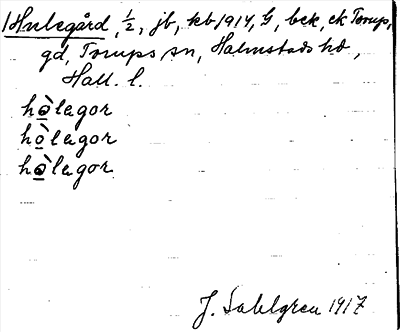 1 Hulegård, ½, jb, kb 1914, G, bek, ek Torup,
gd, Torups sn, Halmstads hd,
Hall. l.
hò̲lagor
hò̲lagor
hò̲lagor
J. Sahlgren 1917